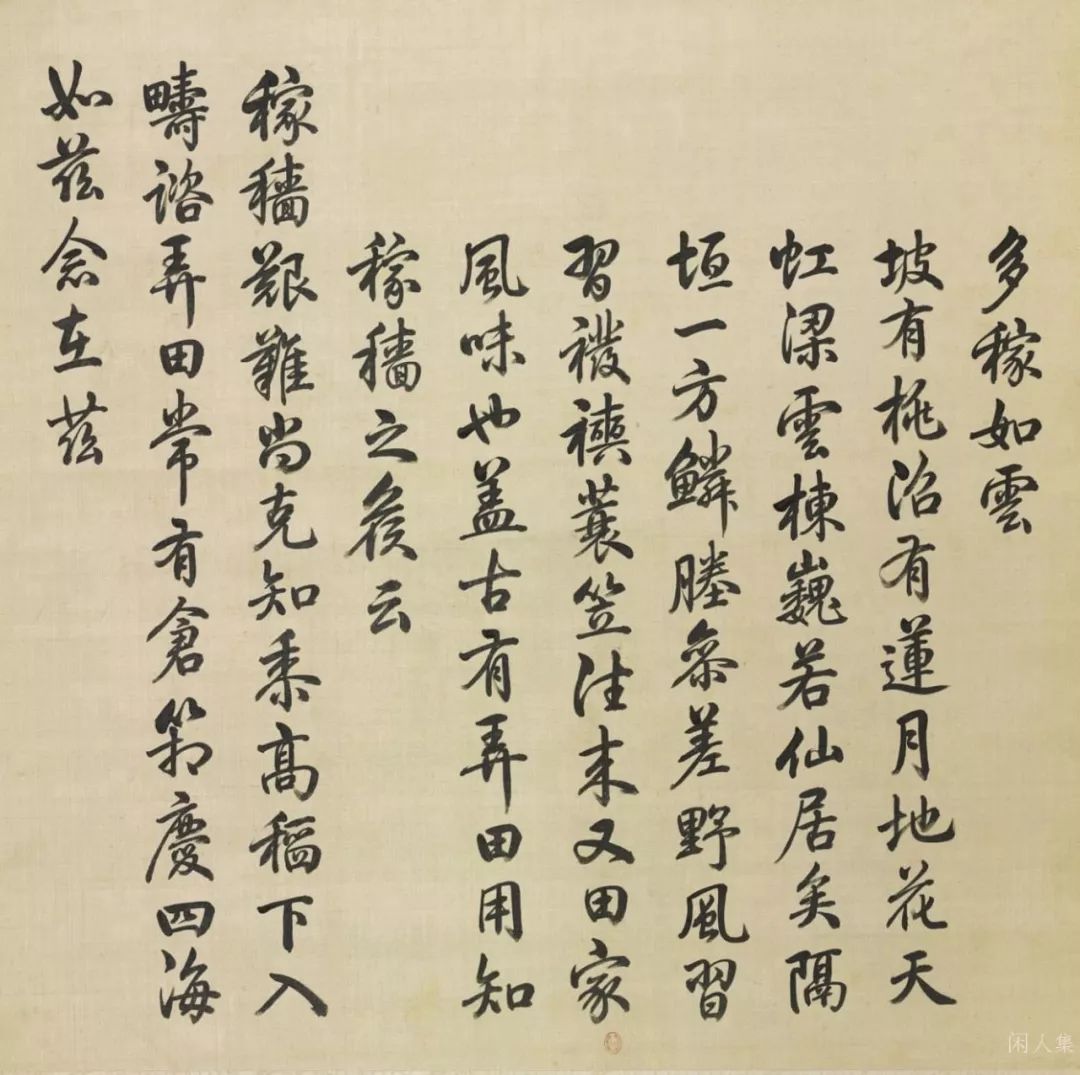 多稼如雲
坡有桃沼有蓮月地花天
虹梁雲棟巍若仙居矣隔
垣一方鱗塍參差野風習
習襏襫蓑笠往来又田家
風味也蓋古有弄田用知
稼穡之候云
稼穡艱難尚克知黍高稻下入
疇諮弄田常有倉箱慶四海
如茲念在茲
闲人集